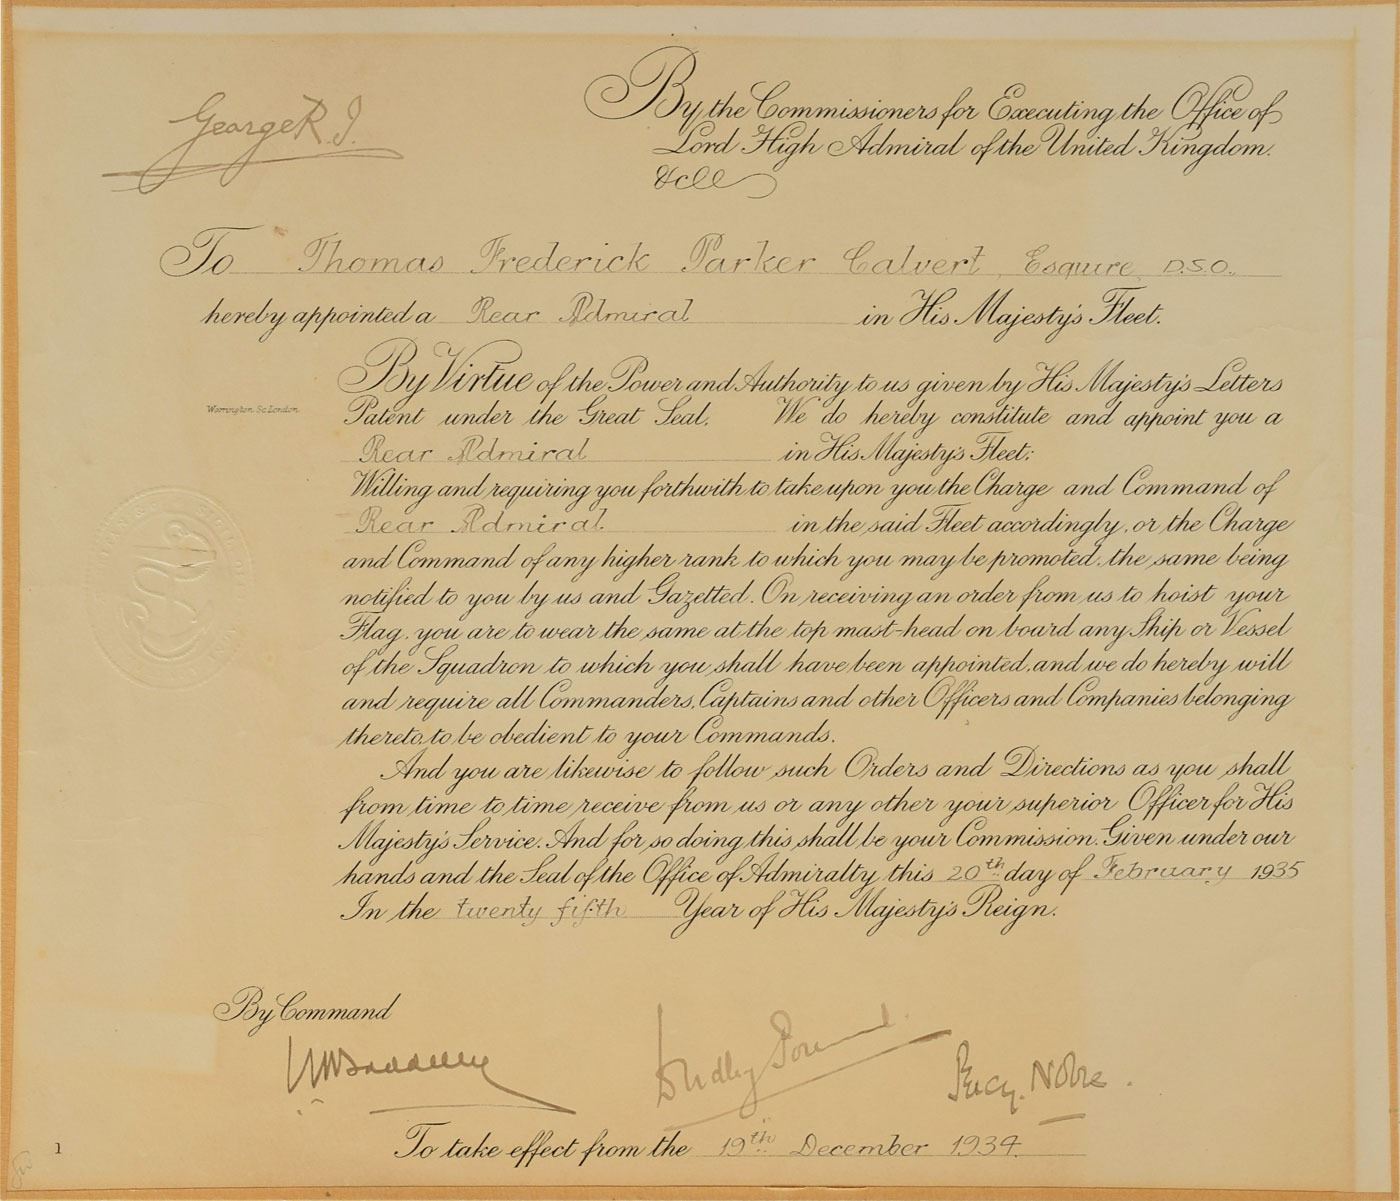 George R. I.
By the Commissioners for Executing the Office of
Lord High Admiral of the United Kingdom.
&c
To Thomas Frederick Parker Calvert, Esquire, D.S.O.,
hereby appointed a Rear Admiral in His Majesty's Fleet.
By Virtue of the Power and Authority to us given by His Majesty's Letters
Patent under the Great Seal. We do hereby constitute and appoint you a
Rear Admiral in His Majesty's Fleet:
Warrington Sc London
Willing and requiring you forthwith to take upon you the Charge and Command of
Rear Admiral in the said Fleet accordingly, or the Charge
and Command of any higher rank to which you may be promoted, the same being
notified to you by us and Gazetted. On receiving an order from us to hoist your
Flag, you are to wear the same at the top mast-head on board any Ship or Vessel
of the Squadron to which you shall have been appointed, and we do hereby will
and require all Commanders, Captains and other Officers and Companies belonging
thereto, to be obedient to your Commands.
And you are likewise to follow such Orders and Directions as you shall
from time to time receive from us or any other your superior Officer for His
Majesty's Service. And for so doing this shall be your Commission. Given under our
hands and the Seal of the Office of Admiralty this 20th day of February 1935
In the twenty fifth Year of His Majesty's Reign.
By Command
Dudley Pound. Percy Noble.
To take effect from the 19th December 1934.
1